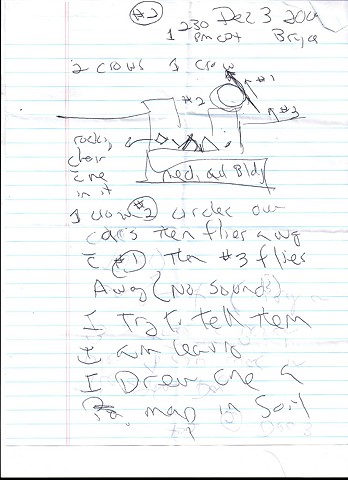 #2
Dec 3 2004
1 230
pm cst
2 crows 1 crow
#1
#2
#3
rocking
chair
one
in it
med. ad Bldg
1 crow #2 circles our
cars then flies away
#1 then #3 flies
Away (No Sound)
I Try to tell them
I am leaving
I Drew one a
map in Soil